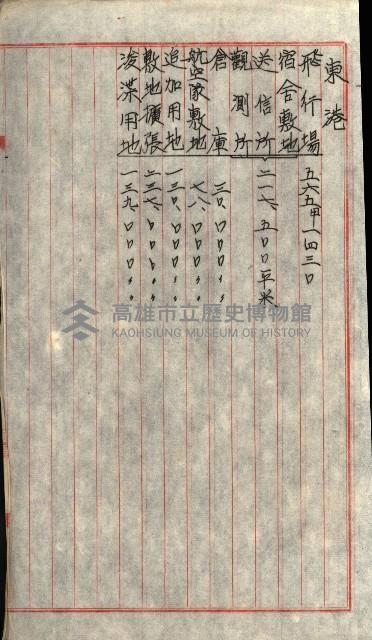 東港
飛行場 五六五甲一四三〇
宿舍敷地
送信所 二一七、五〇〇平米
觀測所
倉庫 三〇、〇〇〇〃
航空隊敷地 七八、〇〇〇〃
追加用地 一三〇、〇〇〇〃
敷地擴張 二三七、〇〇〇〃
浚渫用地 一三九、〇〇〇〃
高雄市立歷史博物館
KAOHSIUNG MUSEUM OF HISTORY